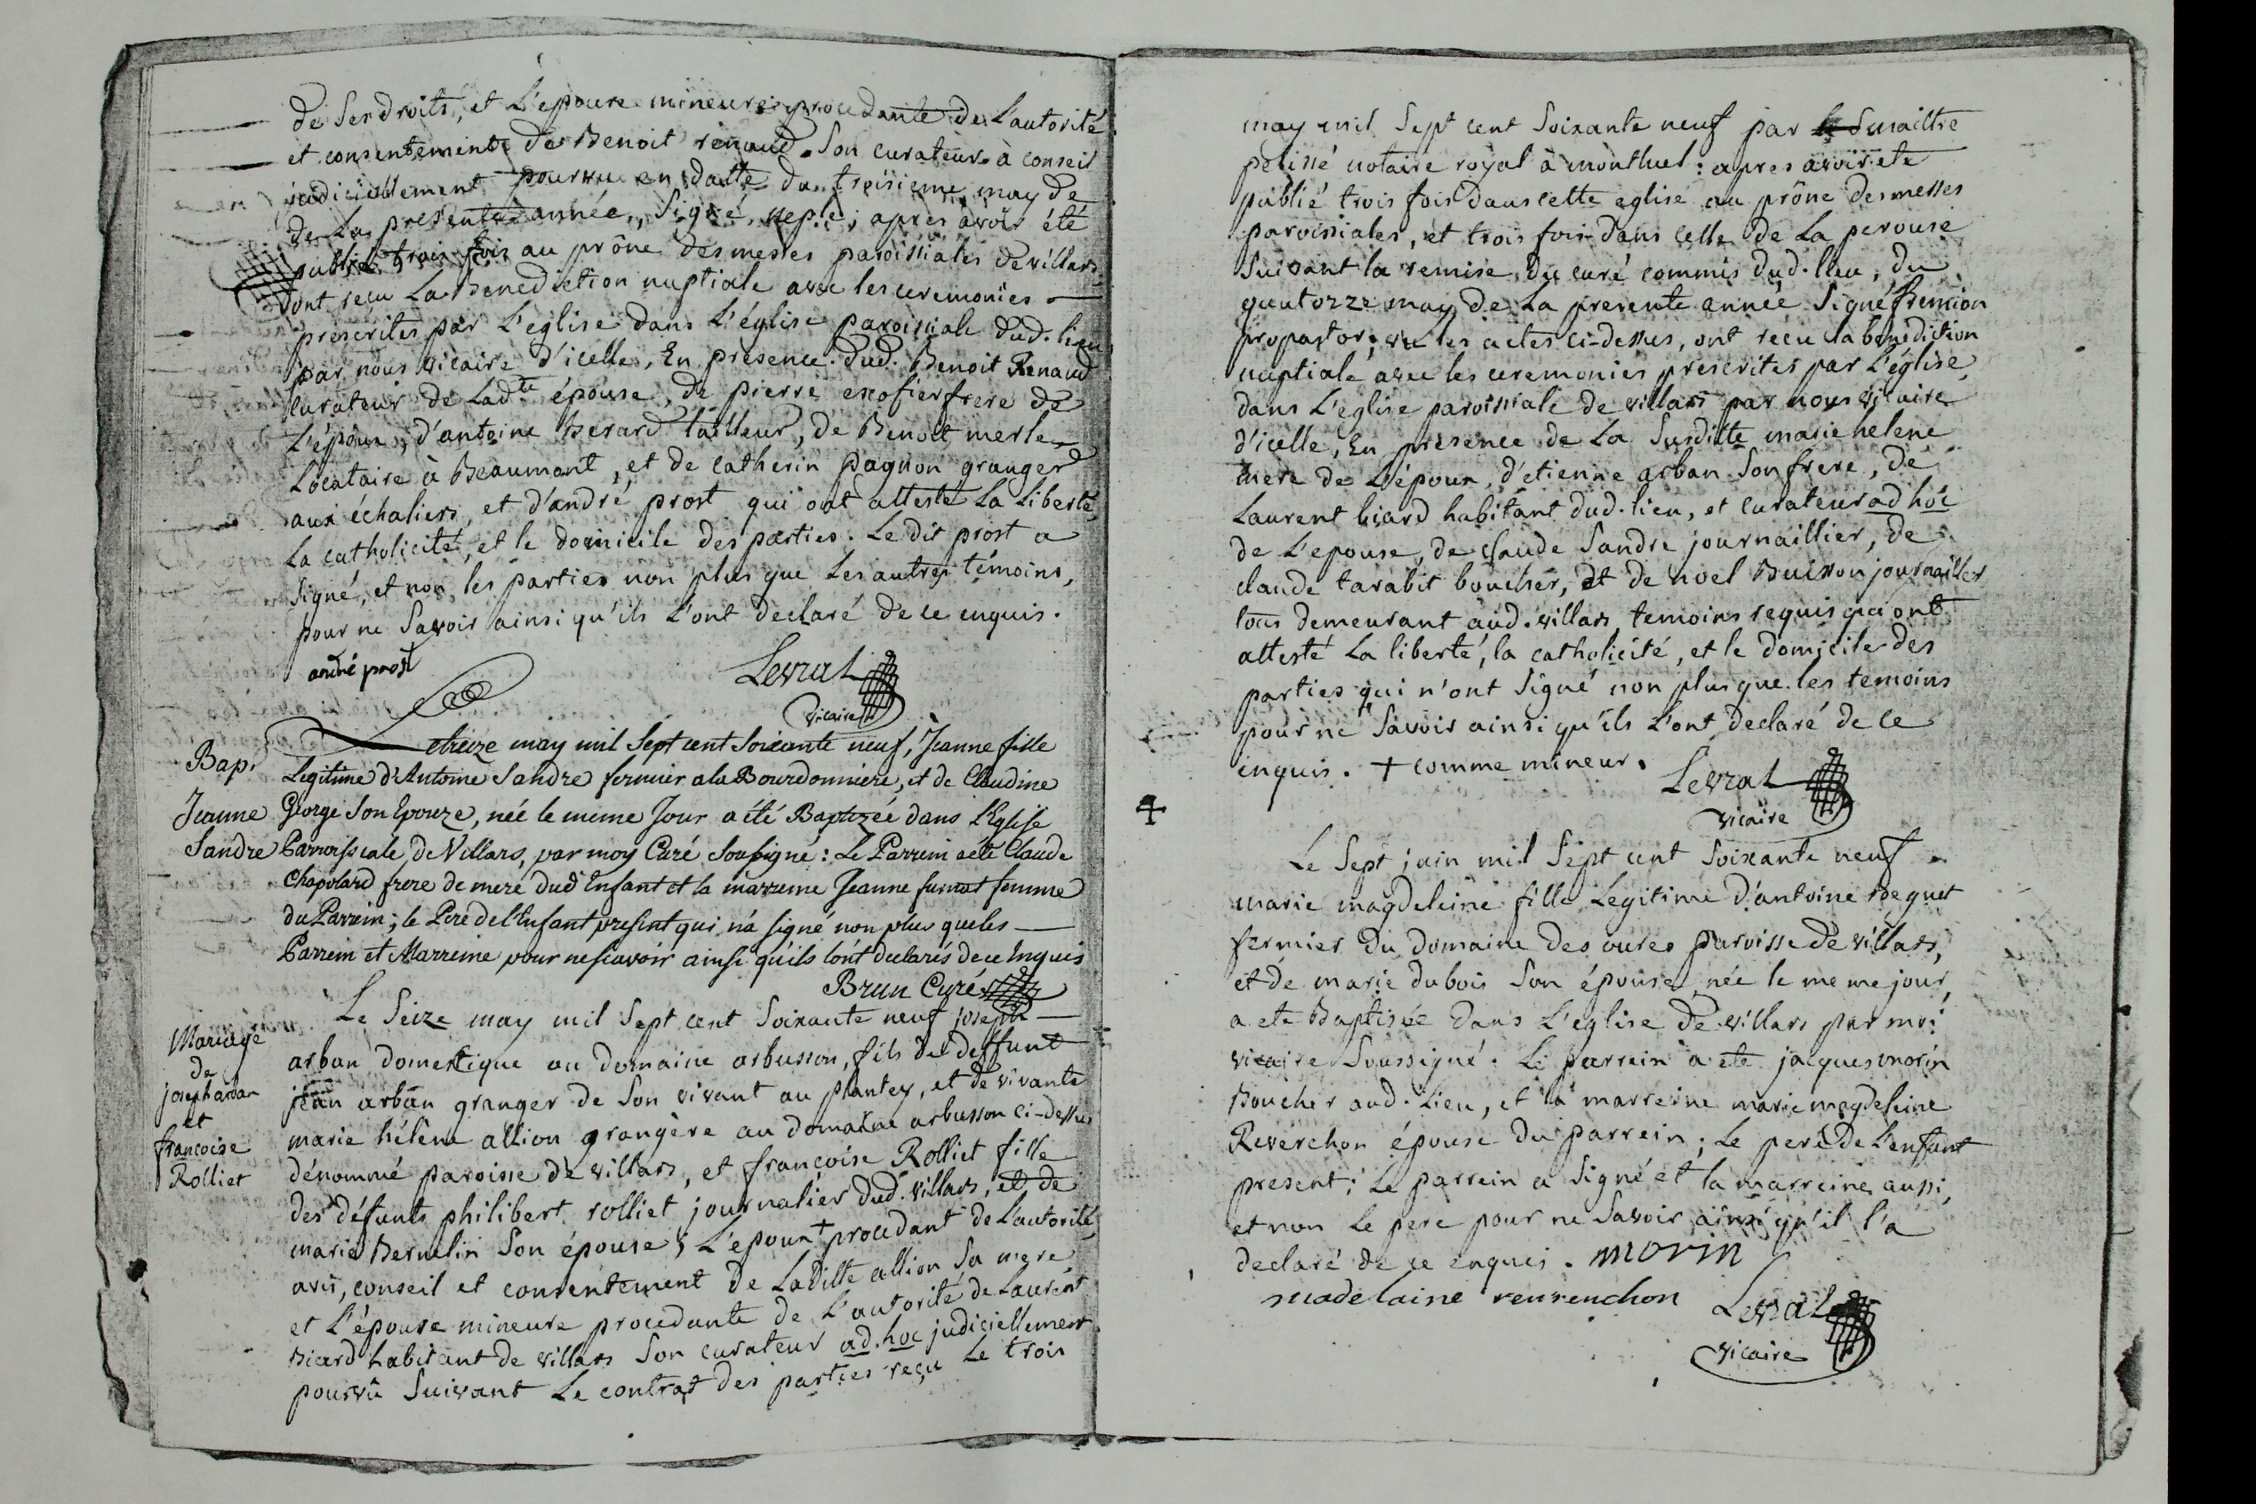 de ses droits, et L'epouse mineure procedante de L'autorité
et consentement de Benoit renaud Son curateur à conseil
judiciellement pourvue en datte du troisieme may de
de La presente année, Signé neple; apres avoir été
publié trois fois au prône des messes paroissiales de villars
ont reçu La Benediction nuptiale avec les ceremonies
prescrites par L'eglise dans L'église paroissiale dud. lieu
par nous vicaire d'icelle, En presence dud. Benoit Renaud
curateur de Ladte épouse, de pierre escofier frere de
L'époux, d'antoine Berard tailleur, de Benoit merle
Locataire à Beaumont, et de catherin pagnon granger
aux échaliers, et d'andré prost qui ont attesté La Liberté,
La catholicité, et le domicile des parties. Le dit prost a
Signé, et non les parties non plus que Les autres témoins,
pour ne Savoir ainsi qu'ils L'ont declaré de ce enquis.
andré prost
Levrat
vicaire
Bap.
Jeanne
Sandre
Le treize may mil Sept cent Soixante neuf, Jeanne fille
Legitime d'Antoine Sandre fermier a la Bourdonniere, et de Claudine
George Son Epouze, née le meme Jour a été Baptizée dans L'Eglise
Parroissiale de Villars, par moy Curé Soussigné: Le Parrein a été Claude
Chapolard frere de mere dud Enfant et la marreine Jeanne furnat femme
du Parrein; le Pere de l'Enfant present qui n'a signé non plus que les
Parrein et Marreine pour ne scavoir ainsi qu'ils l'ont declarés de ce Enquis
Brun Curé
Mariage
de
joseph arban
et
francoise
Rolliet
Le Seize may mil Sept cent Soixante neuf joseph
arban domestique au domaine arbusson, fils de deffunt
jean arban granger de Son vivant au plantey, et de vivante
marie hélène allion grangère au domaine arbusson ci-dessus
dénommé paroisse de villars, et françoise Rolliet fille
des défunts philibert rolliet journalier dud. villars, et de
marie Bernelin Son épouse; L'epoux + procedant de L'autorité,
avis, conseil et consentement de Ladille allion Sa mere
et L'épouse mineure procedante de L'autorité de Laurent
Biard habitant de villars Son curateur ad. hoc judiciellement
pourvû Suivant Le contrat des parties reçu Le trois
may mil Sept cent Soixante neuf par Smaittre
pelissé notaire royal à montluel: apres avoir ete
publié trois fois dans cette eglise au prône des messes
paroissiales, et trois fois dans celle de La perouse
Suivant la remise du curé commis dud. lieu, du
quatorze may de La presente année Signé fremion
propastor; vu les actes ci-dessus, ont recu la benediction
nuptiale avec les ceremonies prescrites par L'église,
dans L'eglise paroissiale de villars par nous vicaire
d'icelle, En presence de La Susditte marie helene
mere de L'époux, d'etienne arban Son frere, de
Laurent biard habitant dud. lieu, et curateur ad hoc
de L'epouse, de claude Sandre journaillier, de
claude tarabit boucher, et de noel Buisson journaillier
tous demeurant aud. villars, temoins requis qui ont
attesté La liberté, la catholicité, et le domicile des
parties qui n'ont Signé non plus que les temoins
pour ne Savoir ainsi qu'ils L'ont declaré de ce
enquis. + comme mineur.
Levrat
vicaire
4
Le Sept juin mil Sept cent Soixante neuf
marie magdeleine fille Legitime d'antoine Beguet
fermier du domaine des oures paroisse de villars,
et de marie dubois Son épouse, née le meme jour,
a ete Baptisée dans L'eglise de villars par moi
vicaire Soussigné. Le parrein a ete jacques morin
Boucher aud. Lieu, et la marreine marie magdeleine
Reverchon épouse du parrein; Le pere de L'enfant
present; Le parrein a Signé et la marreine aussi,
et non Le pere pour ne Savoir ainsi qu'il l'a
declaré de ce enquis. morin
madelaine reurenchon
Levrat
vicaire